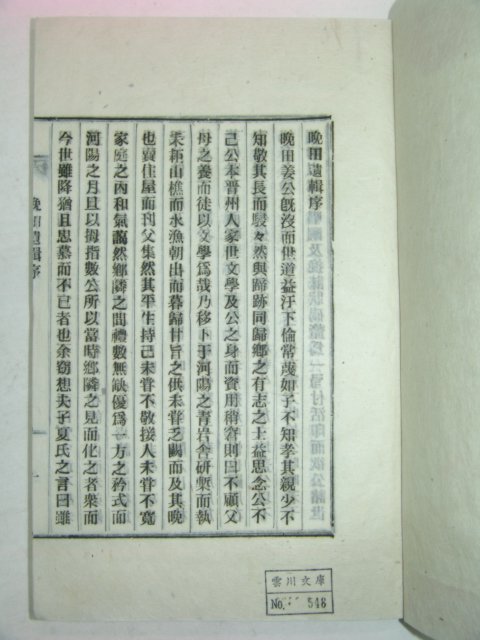 晩田遺輯序
晩田姜公旣沒而世道益汙下倫常蔑如子不知孝其親少不
知敬其長而駸々然與蹄跡同歸鄕之有志之士益思念公不
己公本晋州人家世文學及公之身而資用稍窘則曰不顧父
母之養而徒以文學爲哉乃移卜于河陽之靑岩舍研槧而執
耒耜山樵而水漁朝出而暮歸甘旨之供未甞乏闕而及其晩
也賣住屋而刊父集然其平生持己未甞不敬接人未甞不寬
家庭之內和氣藹然鄕隣之間禮數無缺優爲一方之矜式而
河陽之月旦以拇指數公所以當時鄕隣之見而化之者衆而
今世雖降猶且思慕而不已者也余竊想夫子夏氏之言曰雖
晩田遺輯序
一
雲川文庫
No. 546